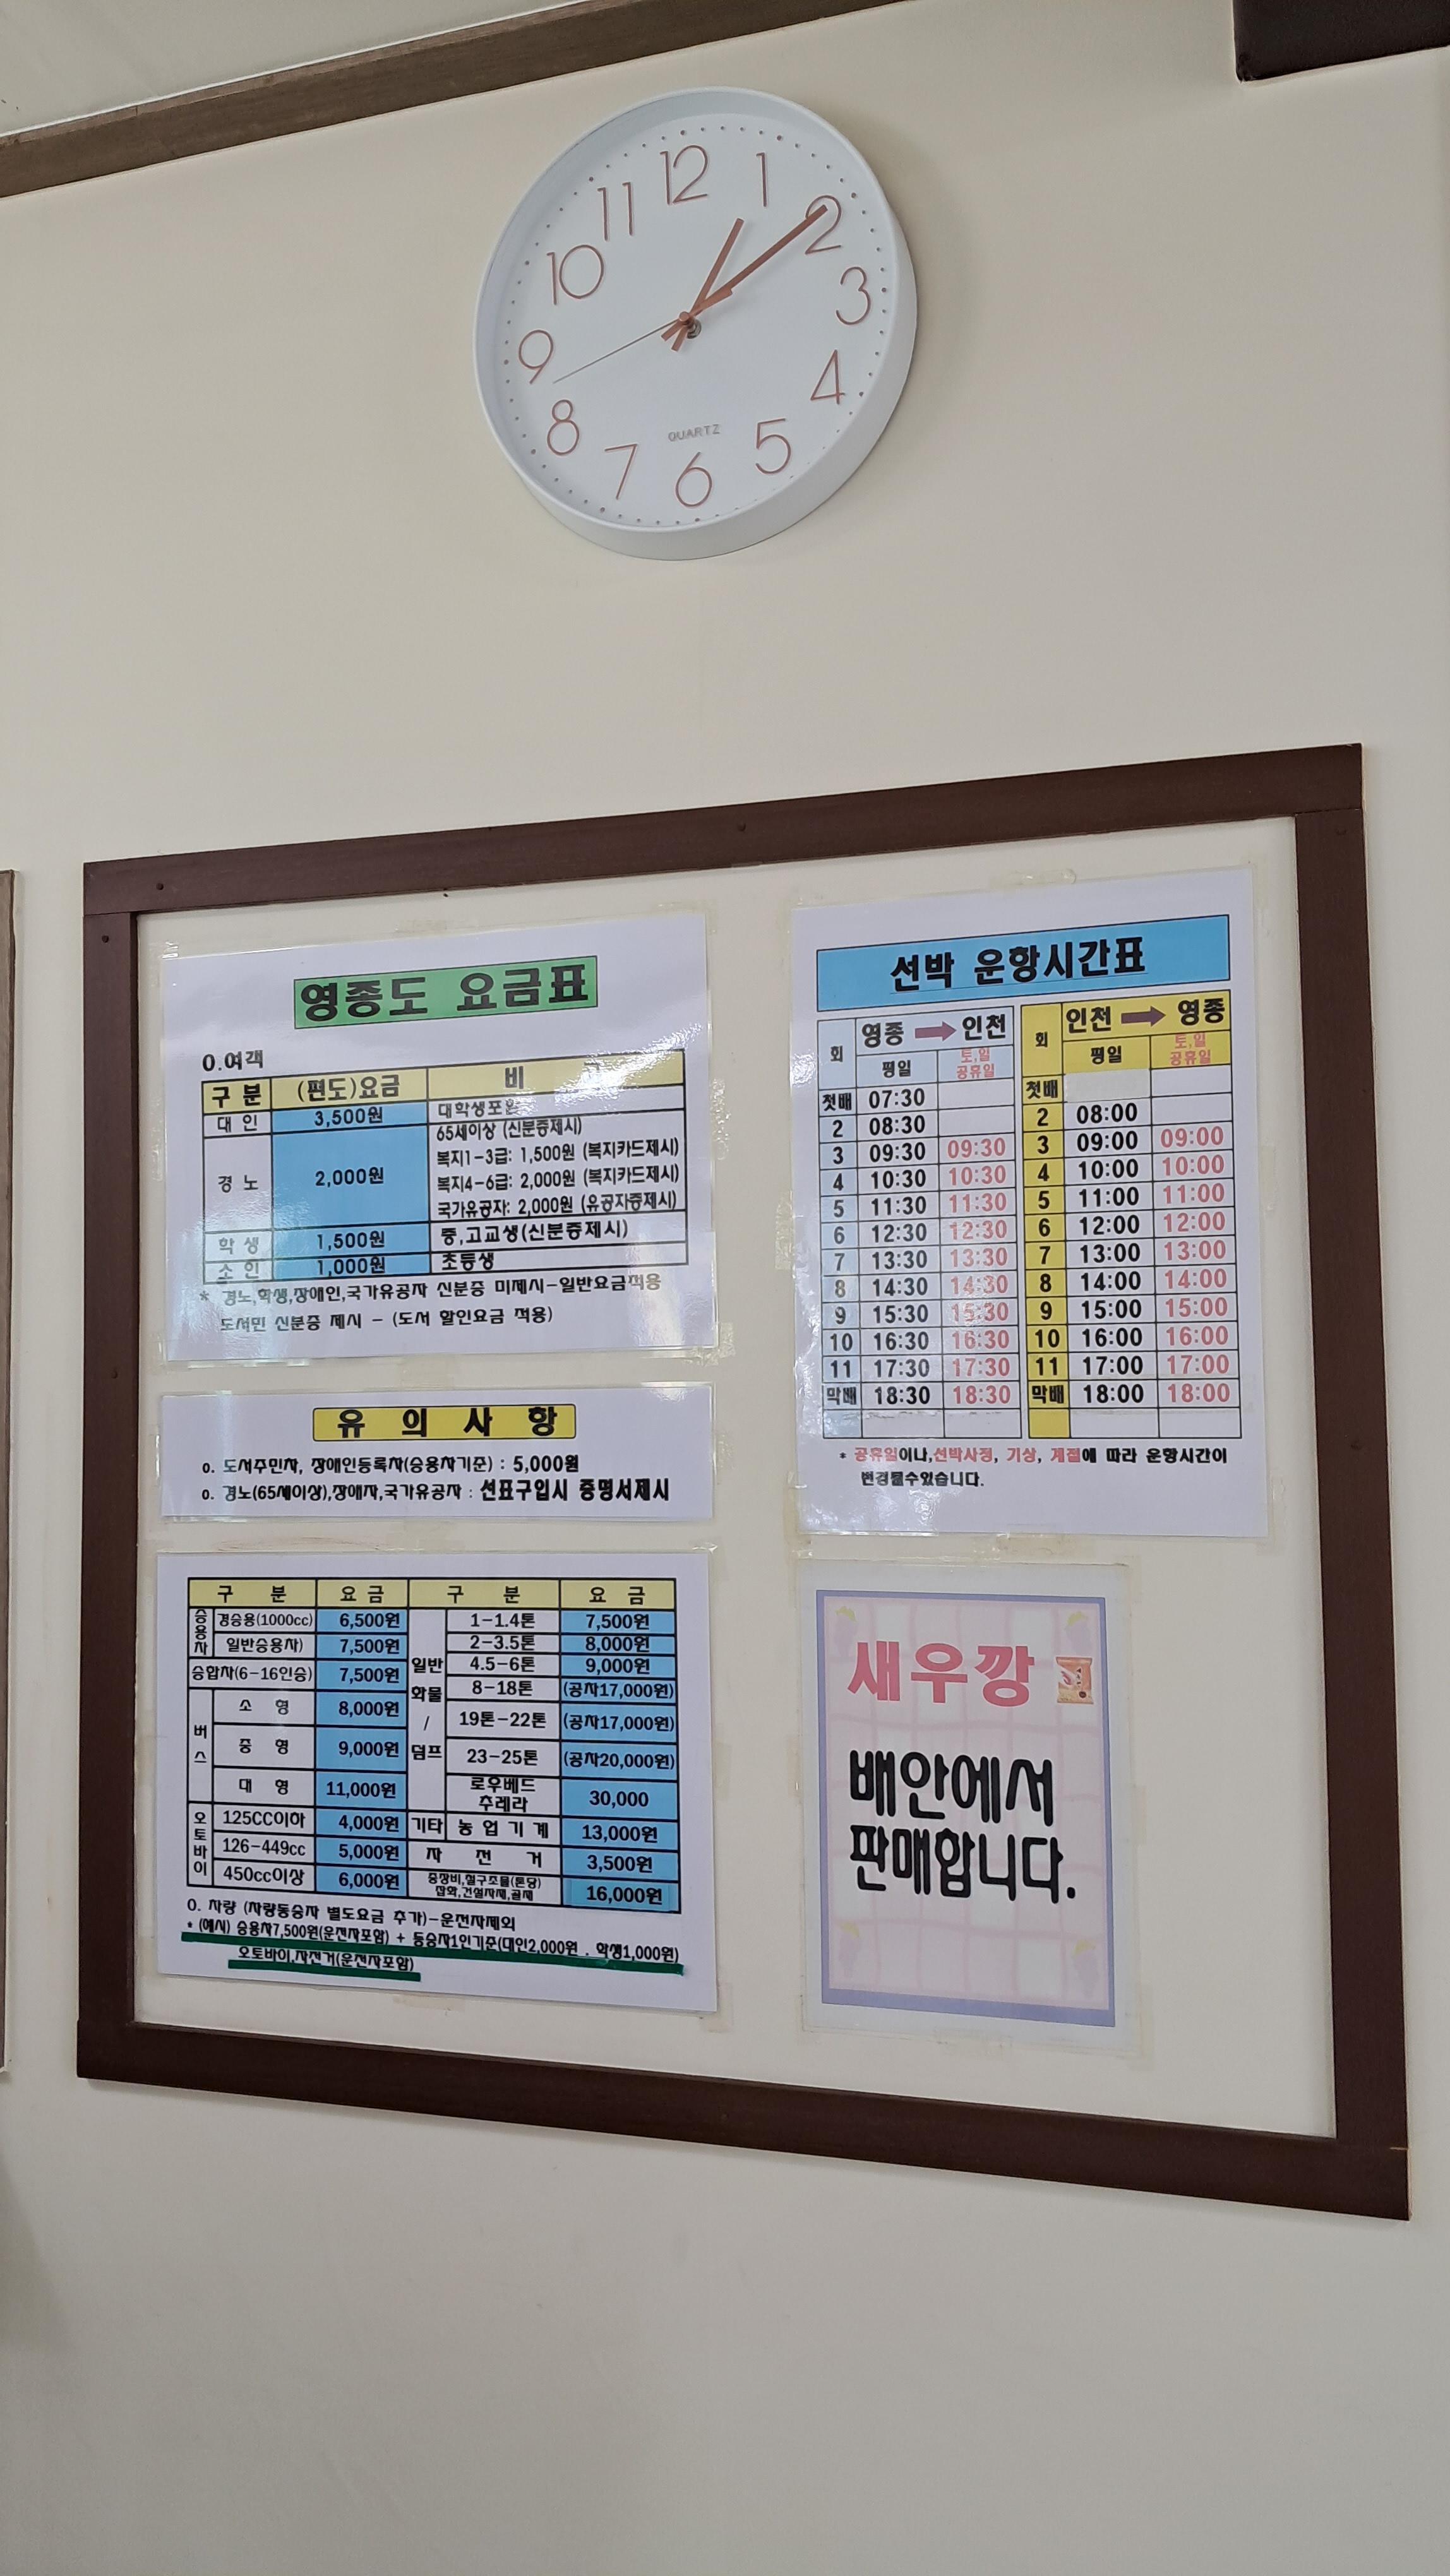 12
1
2
3
4
5
6
7
8
9
10
11
QUARTZ
영종도 요금표
O.여객
구 분 (편도)요금 비
대 인 3,500원 대학생포함
경 노 2,000원 65세이상 (신분증제시)
복지1-3급: 1,500원 (복지카드제시)
복지4-6급: 2,000원 (복지카드제시)
국가유공자: 2,000원 (유공자증제시)
학 생 1,500원 중,고교생(신분증제시)
소 인 1,000원 초등생
* 경노,학생,장애인,국가유공자 신분증 미제시-일반요금적용
도서민 신분증 제시 - (도서 할인요금 적용)
유 의 사 항
o. 도서주민차, 장애인등록차(승용차기준) : 5,000원
o. 경노(65세이상),장애자,국가유공자 : 선표구입시 증명서제시
구 분 요 금 구 분 요 금
승용차 경승용(1000cc) 6,500원 일반화물/덤프 1-1.4톤 7,500원
일반승용차) 7,500원 2-3.5톤 8,000원
승합차(6-16인승) 7,500원 4.5-6톤 9,000원
8-18톤 (공차17,000원)
버스 소 형 8,000원 19톤-22톤 (공차17,000원)
중 형 9,000원 23-25톤 (공차20,000원)
대 형 11,000원 로우베드 추레라 30,000
오토바이 125CC이하 4,000원 기타 농 업 기 계 13,000원
126-449cc 5,000원 자 전 거 3,500원
450cc이상 6,000원 중장비,철구조물(톤당) 잡화,건설자재,골재 16,000원
O. 차량 (차량동승자 별도요금 추가)-운전자제외
* (예시) 승용차7,500원(운전자포함) + 동승자1인기준(대인2,000원 . 학생1,000원)
오토바이,자전거(운전자포함)
선박 운항시간표
회 영종 → 인천 회 인천 → 영종
평일 토,일 공휴일 평일 토,일 공휴일
첫배 07:30 첫배
2 08:30 2 08:00
3 09:30 09:30 3 09:00 09:00
4 10:30 10:30 4 10:00 10:00
5 11:30 11:30 5 11:00 11:00
6 12:30 12:30 6 12:00 12:00
7 13:30 13:30 7 13:00 13:00
8 14:30 14:30 8 14:00 14:00
9 15:30 15:30 9 15:00 15:00
10 16:30 16:30 10 16:00 16:00
11 17:30 17:30 11 17:00 17:00
막배 18:30 18:30 막배 18:00 18:00
* 공휴일이나,선박사정, 기상, 계절에 따라 운항시간이
변경될수있습니다.
새우깡
배안에서
판매합니다.